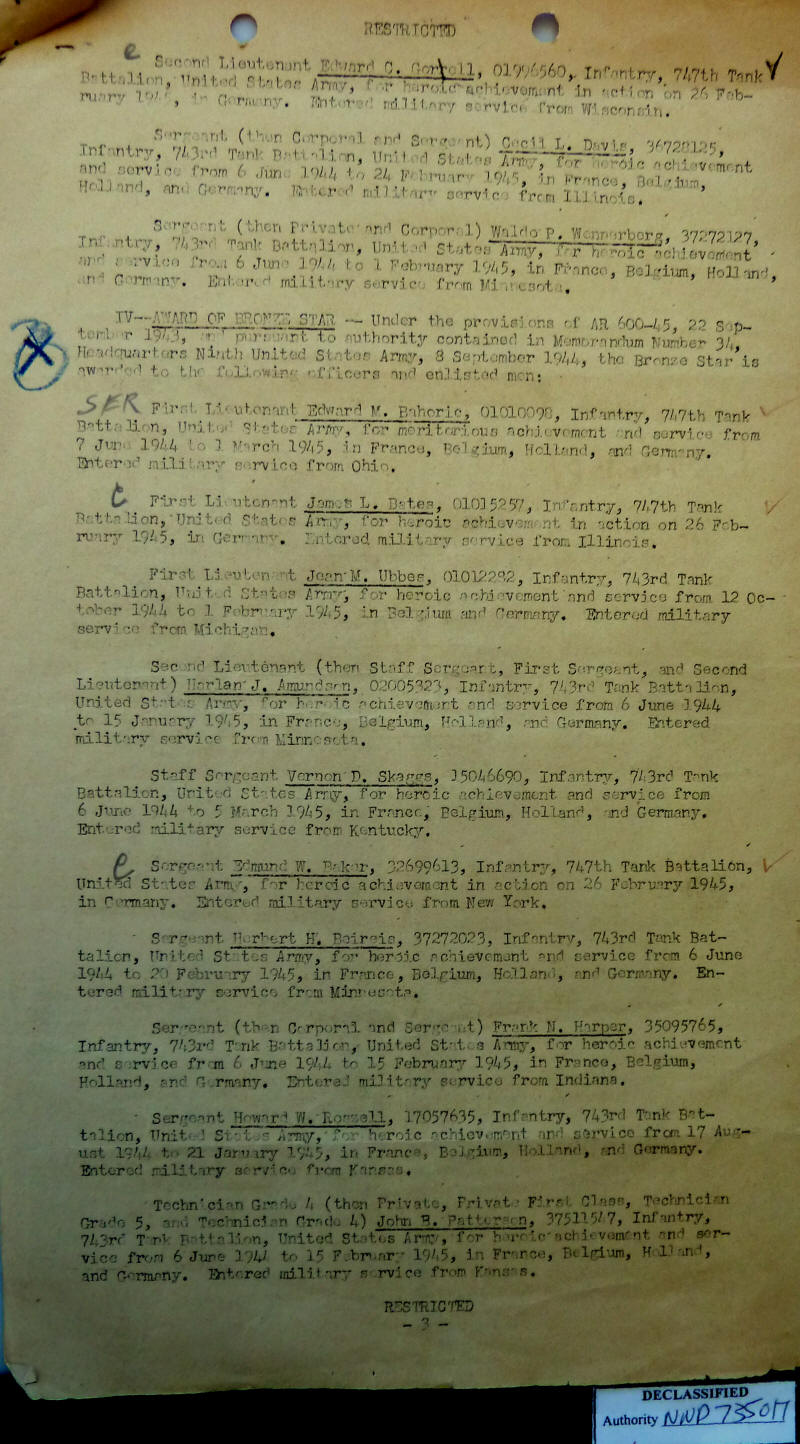 RESTRICTED
e Second Lieutenant Edward C. 01996560, Infantry, 747th Tank
Battalion, United States Army, for heroic achievement in action on 26 Feb-
ruary in Germany. Entered military service from Wisconsin.
Sergeant (then Corporal and Sergeant) Cecil L. Davis, 36728125,
Infantry, 743rd Tank Battalion, United States Army, for heroic achievement
and service from 6 June 1944 to 24 February 1945, in France, Belgium,
Holland, and Germany. Entered military service from Illinois.
Sergeant (then Private and Corporal) Waldo P. Wennerberg, 37272127,
Infantry, 743rd Tank Battalion, United States Army, for heroic achievement
and service from 6 June 1944 to 1 February 1945, in France, Belgium, Holland,
and Germany. Entered military service from Minnesota.
IV--AWARD OF BRONZE STAR -- Under the provisions of AR 600-45, 22 Sep-
tember 1943, and pursuant to authority contained in Memorandum Number 34,
Headquarters Ninth United States Army, 8 September 1944, the Bronze Star is
awarded to the following officers and enlisted men:
SER First Lieutenant Edward M. Bahoric, 01010098, Infantry, 747th Tank
Battalion, United States Army, for meritorious achievement and service from
7 June 1944 to 1 March 1945, in France, Belgium, Holland, and Germany.
Entered military service from Ohio.
First Lieutenant James L. Bates, 01015257, Infantry, 747th Tank
Battalion, United States Army, for heroic achievement in action on 26 Feb-
ruary 1945, in Germany. Entered military service from Illinois.
First Lieutenant Jean M. Ubbes, 01012282, Infantry, 743rd Tank
Battalion, United States Army, for heroic achievement and service from 12 Oc-
tober 1944 to 1 February 1945, in Belgium and Germany. Entered military
service from Michigan.
Second Lieutenant (then Staff Sergeant, First Sergeant, and Second
Lieutenant) Harlan J. Amundsen, 02005323, Infantry, 743rd Tank Battalion,
United States Army, for heroic achievement and service from 6 June 1944
to 15 January 1945, in France, Belgium, Holland, and Germany. Entered
military service from Minnesota.
Staff Sergeant Vernon D. Skaggs, 15046690, Infantry, 743rd Tank
Battalion, United States Army, for heroic achievement and service from
6 June 1944 to 5 March 1945, in France, Belgium, Holland, and Germany.
Entered military service from Kentucky.
e Sergeant Edmund W. Baker, 32699613, Infantry, 747th Tank Battalion,
United States Army, for heroic achievement in action on 26 February 1945,
in Germany. Entered military service from New York.
Sergeant Herbert H. 37272023, Infantry, 743rd Tank Bat-
talion, United States Army, for heroic achievement and service from 6 June
1944 to 20 February 1945, in France, Belgium, Holland, and Germany. En-
tered military service from Minnesota.
Sergeant (then Corporal and Sergeant) Frank N. Harper, 35095765,
Infantry, 743rd Tank Battalion, United States Army, for heroic achievement
and service from 6 June 1944 to 15 February 1945, in France, Belgium,
Holland, and Germany. Entered military service from Indiana.
Sergeant Howard W. 17057635, Infantry, 743rd Tank Bat-
talion, United States Army, for heroic achievement and service from 17 Aug-
ust 1944 to 21 January 1945, in France, Belgium, Holland, and Germany.
Entered military service from Kansas.
Technician Grade 4 (then Private, Private First Class, Technician
Grade 5, and Technician Grade 4) John B. Patterson, 37511547, Infantry,
743rd Tank Battalion, United States Army, for heroic achievement and ser-
vice from 6 June 1944 to 15 February 1945, in France, Belgium, Holland,
and Germany. Entered military service from Kansas.
RESTRICTED
- 3 -
DECLASSIFIED
Authority NND 735017